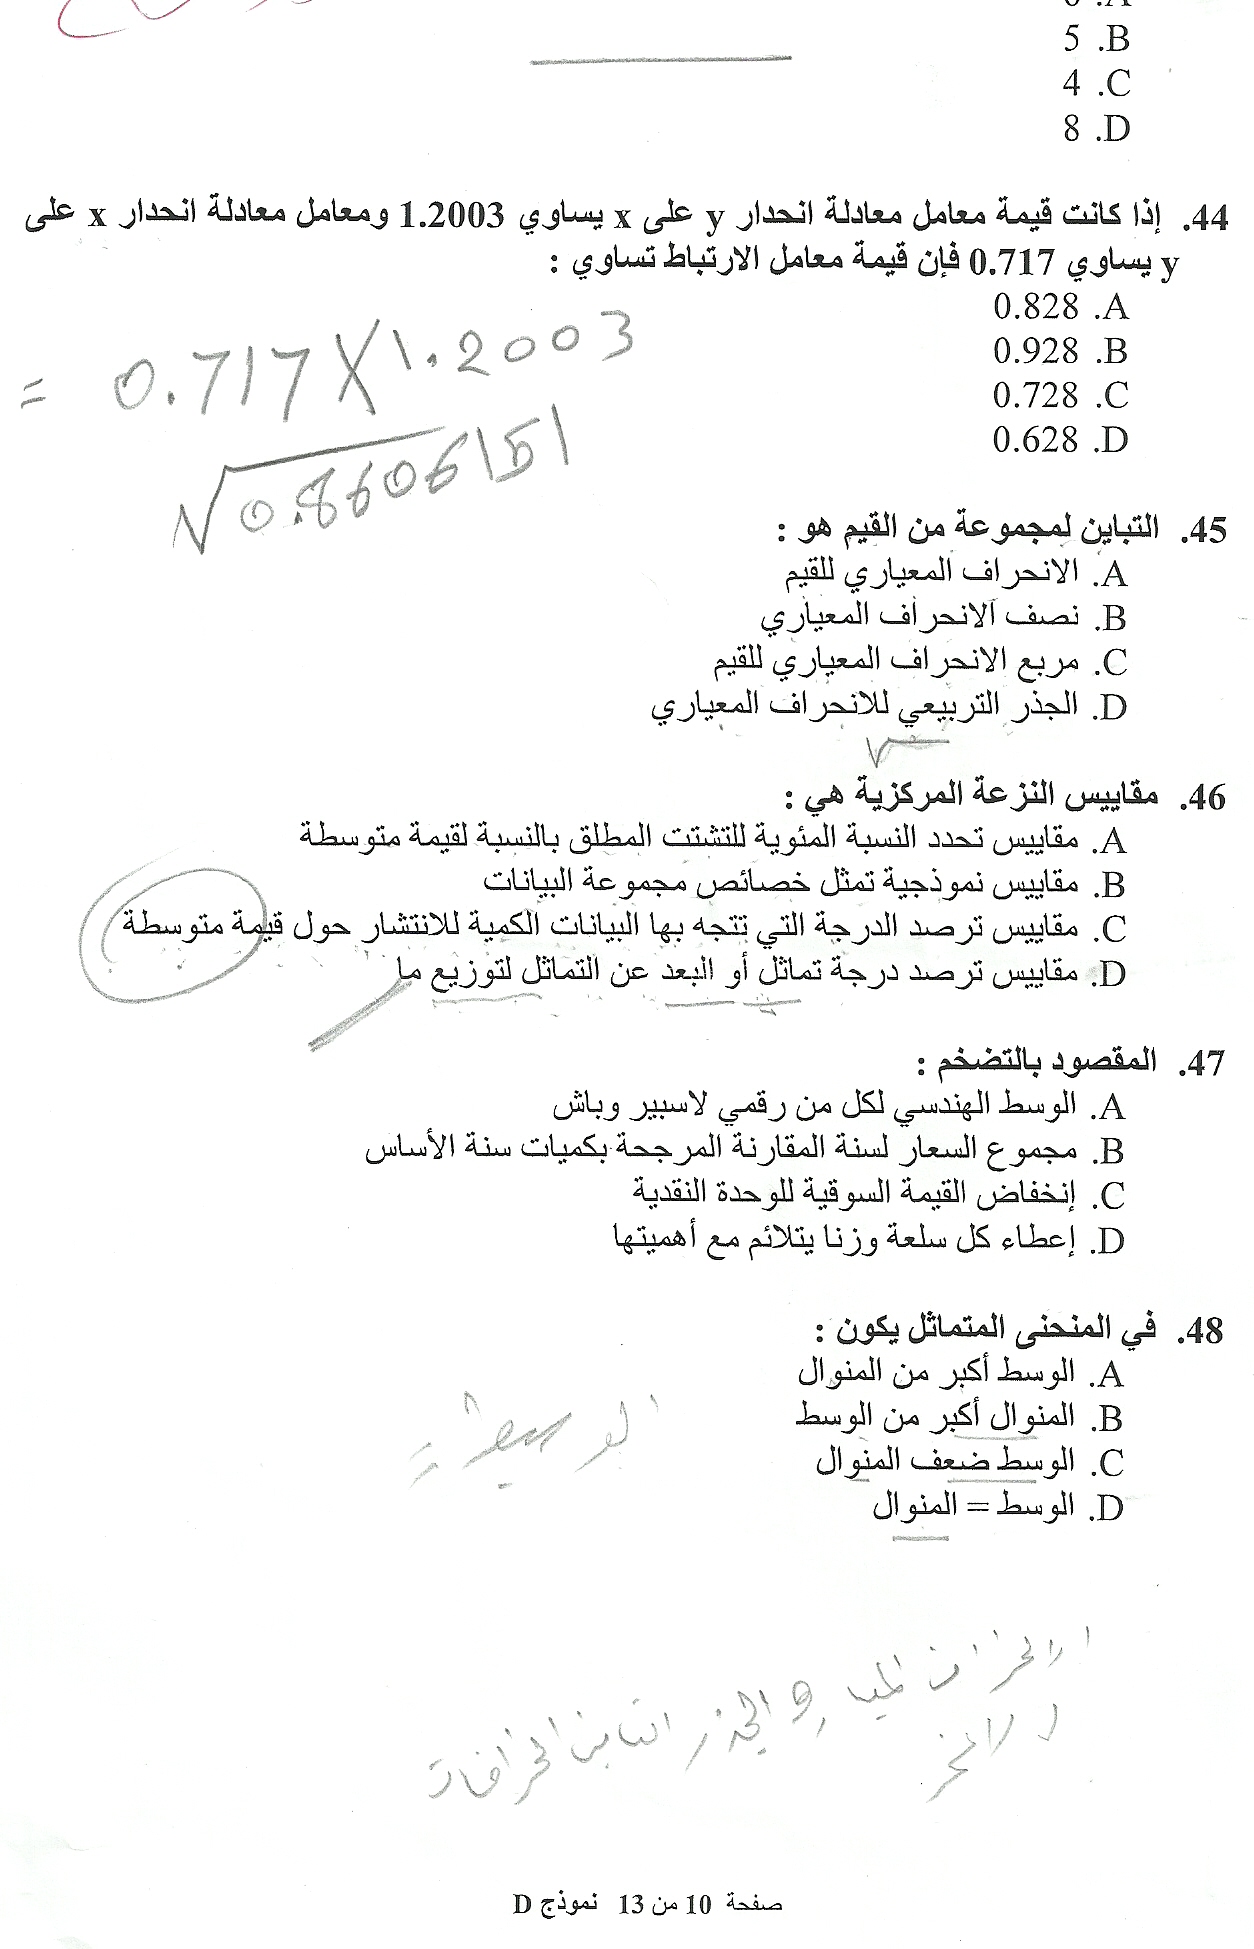 5 .B
4 .C
8 .D
44. إذا كانت قيمة معامل معادلة انحدار y على x يساوي 1.2003 ومعامل معادلة انحدار x على
y يساوي 0.717 فإن قيمة معامل الارتباط تساوي :
0.828 .A
0.928 .B
0.728 .C
0.628 .D
= 0.717 X 1.2003
√0.8606151
45. التباين لمجموعة من القيم هو :
A. الانحراف المعياري للقيم
B. نصف الانحراف المعياري
C. مربع الانحراف المعياري للقيم
D. الجذر التربيعي للانحراف المعياري
46. مقاييس النزعة المركزية هي :
A. مقاييس تحدد النسبة المئوية للتشتت المطلق بالنسبة لقيمة متوسطة
B. مقاييس نموذجية تمثل خصائص مجموعة البيانات
C. مقاييس ترصد الدرجة التي تتجه بها البيانات الكمية للانتشار حول قيمة متوسطة
D. مقاييس ترصد درجة تماثل أو البعد عن التماثل لتوزيع ما
47. المقصود بالتضخم :
A. الوسط الهندسي لكل من رقمي لاسبير وباش
B. مجموع السعار لسنة المقارنة المرجحة بكميات سنة الأساس
C. إنخفاض القيمة السوقية للوحدة النقدية
D. إعطاء كل سلعة وزنا يتلائم مع أهميتها
48. في المنحنى المتماثل يكون :
A. الوسط أكبر من المنوال
B. المنوال أكبر من الوسط
C. الوسط ضعف المنوال
D. الوسط = المنوال
الوسيط =
صفحة 10 من 13 نموذج D